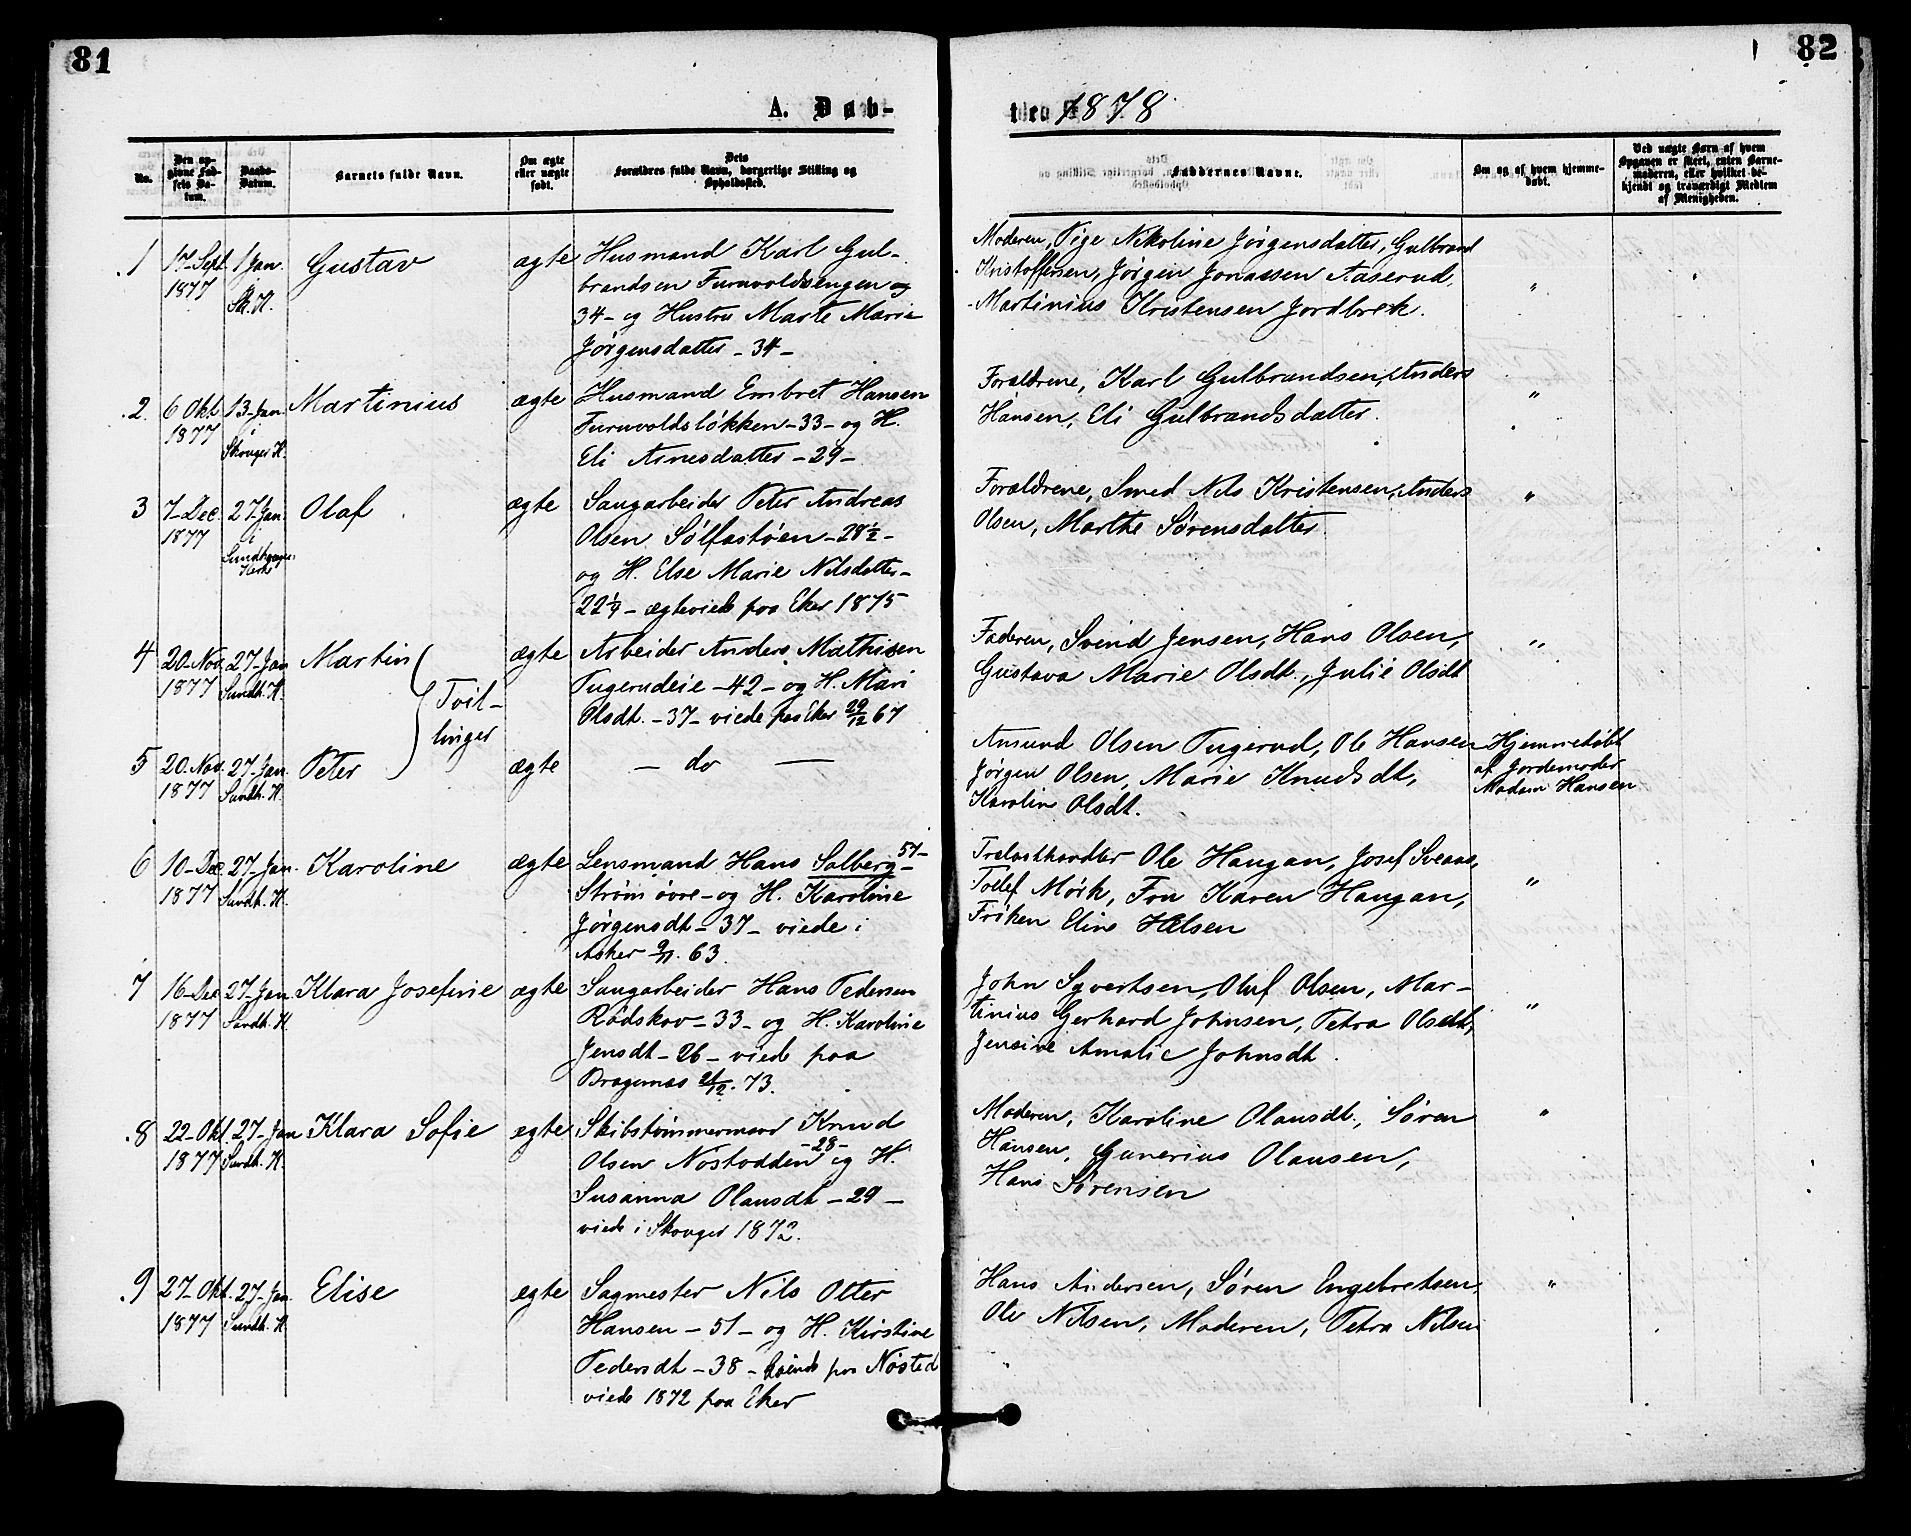 81
82
A. Døb-
te 1878.
No.
Den op-
givne Fød-
sels Da-
tum.
Daabs-
Datum.
Barnets fulde Navn.
Om ægte
eller uægte
født.
Dets
Forældres fulde Navn, borgerlige Stilling og
Opholdssted.
Faddernes Navne.
Om og af hvem hjemme-
døbt.
Ved uægte Børn af hvem
Opgaven er skeet, enten Barne-
moderen, eller hvilket be-
kjendt og troværdigt Medlem
af Menigheden.
1
17-Sept
1877
1 Jan.
Sk. K.
Gustav
ægte
Husmand Karl Gul-
brandsen Furuvoldsengen og
34- og Hustru Marte Marie
Jørgensdatter -34-
Moderen, Pige Nikoline Jørgensdatter, Gulbrand
Kristoffersen, Jørgen Jonassen Aaserud,
Martinius Kristensen Jordbrek.
"
2.
6 Okt.
1877
13-Jan.
i
Skouger K.
Martinius
ægte
Husmand Embret Hansen
Furuvoldsløkken -33- og H.
Eli Arnesdatter -29-
Forældrene, Karl Gulbrandsen, Anders
Hansen, Eli Gulbrandsdatter.
"
3
7-Dec.
1877
27-Jan.
i
Sundhaugen
Kirke
Olaf
ægte
Saugarbeider Peter Andreas
Olsen Sølfastøen -28½-
og H. Else Marie Nilsdatter-
22¼- ægteviede paa Eker 1875
Forældrene, Smed Nils Kristensen, Anders
Olsen, Marthe Sørensdatter.
"
4
20-Nov.
1877
27-Jan
Sundh. K.
Martin
Tvil-
linger
ægte
Arbeider Anders Mathisen
Tugerudeie -42- og H. Mari
Olsdt. -37- viede paa Eker 29/12 67
Faderen, Svend Jensen, Hans Olsen,
Gustava Marie Olsdt., Julie Olsdt
"
5
20-Nov.
1877
27-Jan.
Sundh. K.
Peter
ægte
- do -
Amund Olsen Tugerud, Ole Hansen
Jørgen Olsen, Marie Knudsdt,
Karoline Olsdt.
Hjemmedøbt
af Jordemoder
Madam Hansen
6
10-Dec
1877
27-Jan.
Sundh. K.
Karoline
ægte
Lensmand Hans Solberg -51-
Strøm øvre- og H. Karoline
Jørgensdt -37- viede i
Asker 9/11. 63.
Trelasthandler Ole Haugan, Josef Sveaas,
Tollef Mørk, Fru Karen Haugan,
Frøken Eline Helsen
"
7
16-Dec
1877
27-Jan.
Sundh. K
Klara Josefine
ægte
Saugarbeider Hans Pedersen
Rødskov -33- og H. Karoline
Jensdt -26- viede paa
Bragernæs 21/12. 73.
John Syvertsen, Oluf Olsen, Mar-
tinius Gerhard Johnsen, Petra Olsdt,
Jensine Amalie Johnsdt.
"
8
22-Okt.
1877
27-Jan
Sundh. K.
Klara Sofie
egte
Skibstømmermand Knud
Olsen Nøstodden -28- og H.
Susanna Olausdt -29-
viede i Skouger 1872.
Moderen, Karoline Olausdt., Søren
Hansen, Gunerius Olausen,
Hans Sørensen
"
9
27-Okt.
1877
27-Jan.
Sundh. K
Elise
egte
Sagmester Nils Otter
Hansen -51- og H. Kirstine
Pedersdt -38- boende paa Nøsted
viede 1872 paa Eker
Hans Andersen, Søren Engebretsen,
Ole Nilsen, Moderen, Petra Nilsen
"